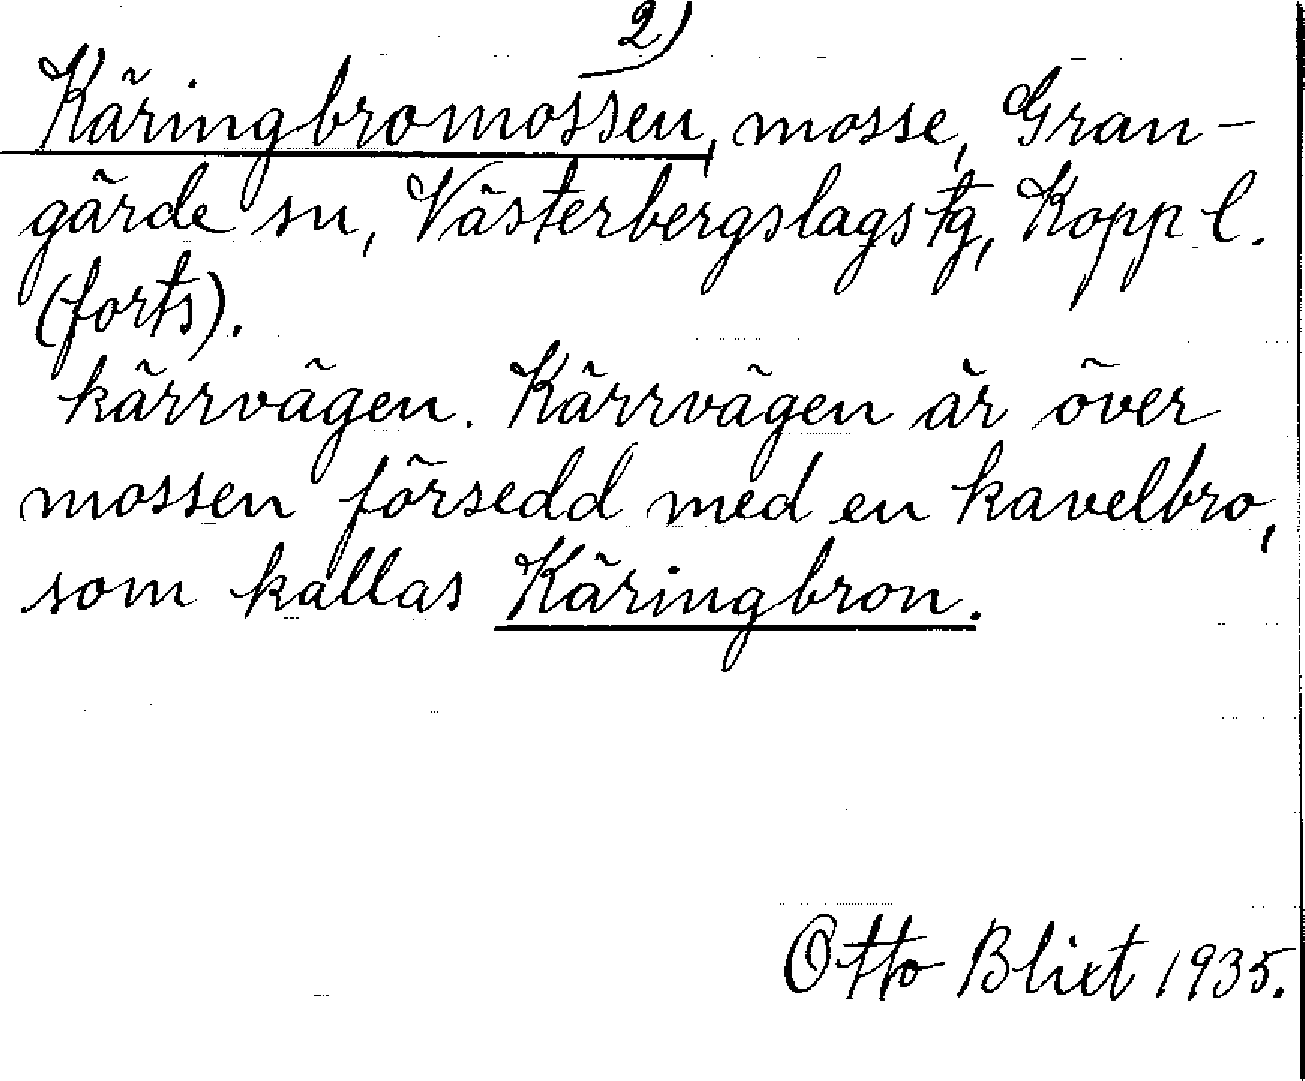 2)
Käringbromossen, mosse, Gran-
gärde sn, Västerbergslags tg, Kopp l.
(forts).
kärrvägen. Kärrvägen är över
mossen försedd med en kavelbro,
som kallas Käringbron.
Otto Blixt 1935.